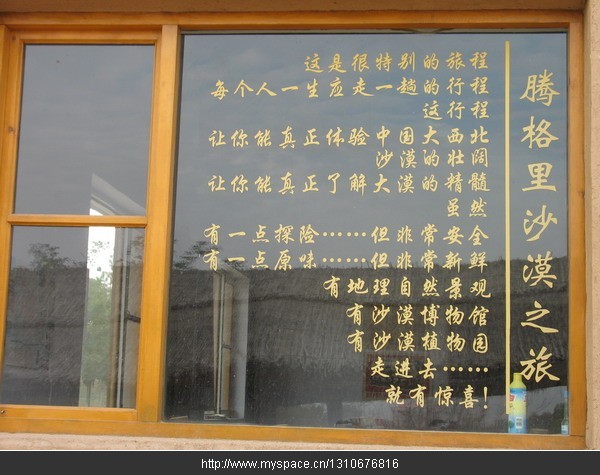 腾格里沙漠之旅
这是很特别的旅程
每个人一生应走一趟的行程
这行程
让你能真正体验中国大西北
沙漠的壮阔
让你能真正了解大漠的精髓
虽然
有一点探险……但非常安全
有一点原味……但非常新鲜
有地理自然景观
有沙漠博物馆
有沙漠植物园
走进去……
就有惊喜!
http://www.myspace.cn/1310676816